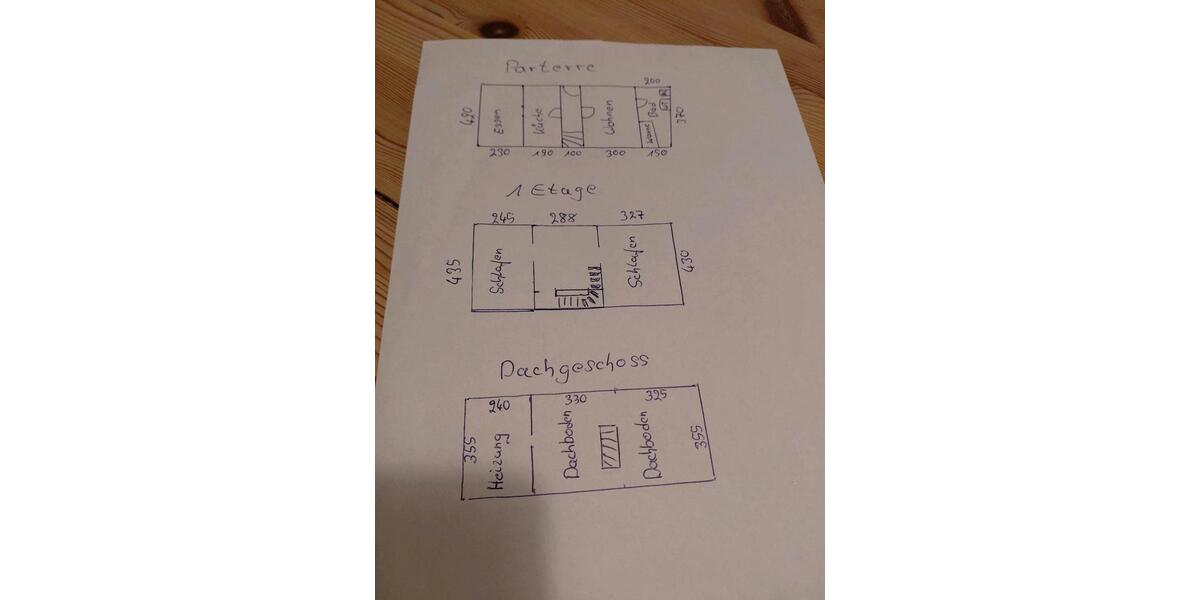 Parterre
200
420
Essen
Küche
Wohnen
Bad
Wanne
370
230
190
100
300
150
1 Etage
245
288
327
435
Schlafen
Schlafen
430
Dachgeschoss
240
330
325
355
Heizung
Dachboden
Dachboden
355